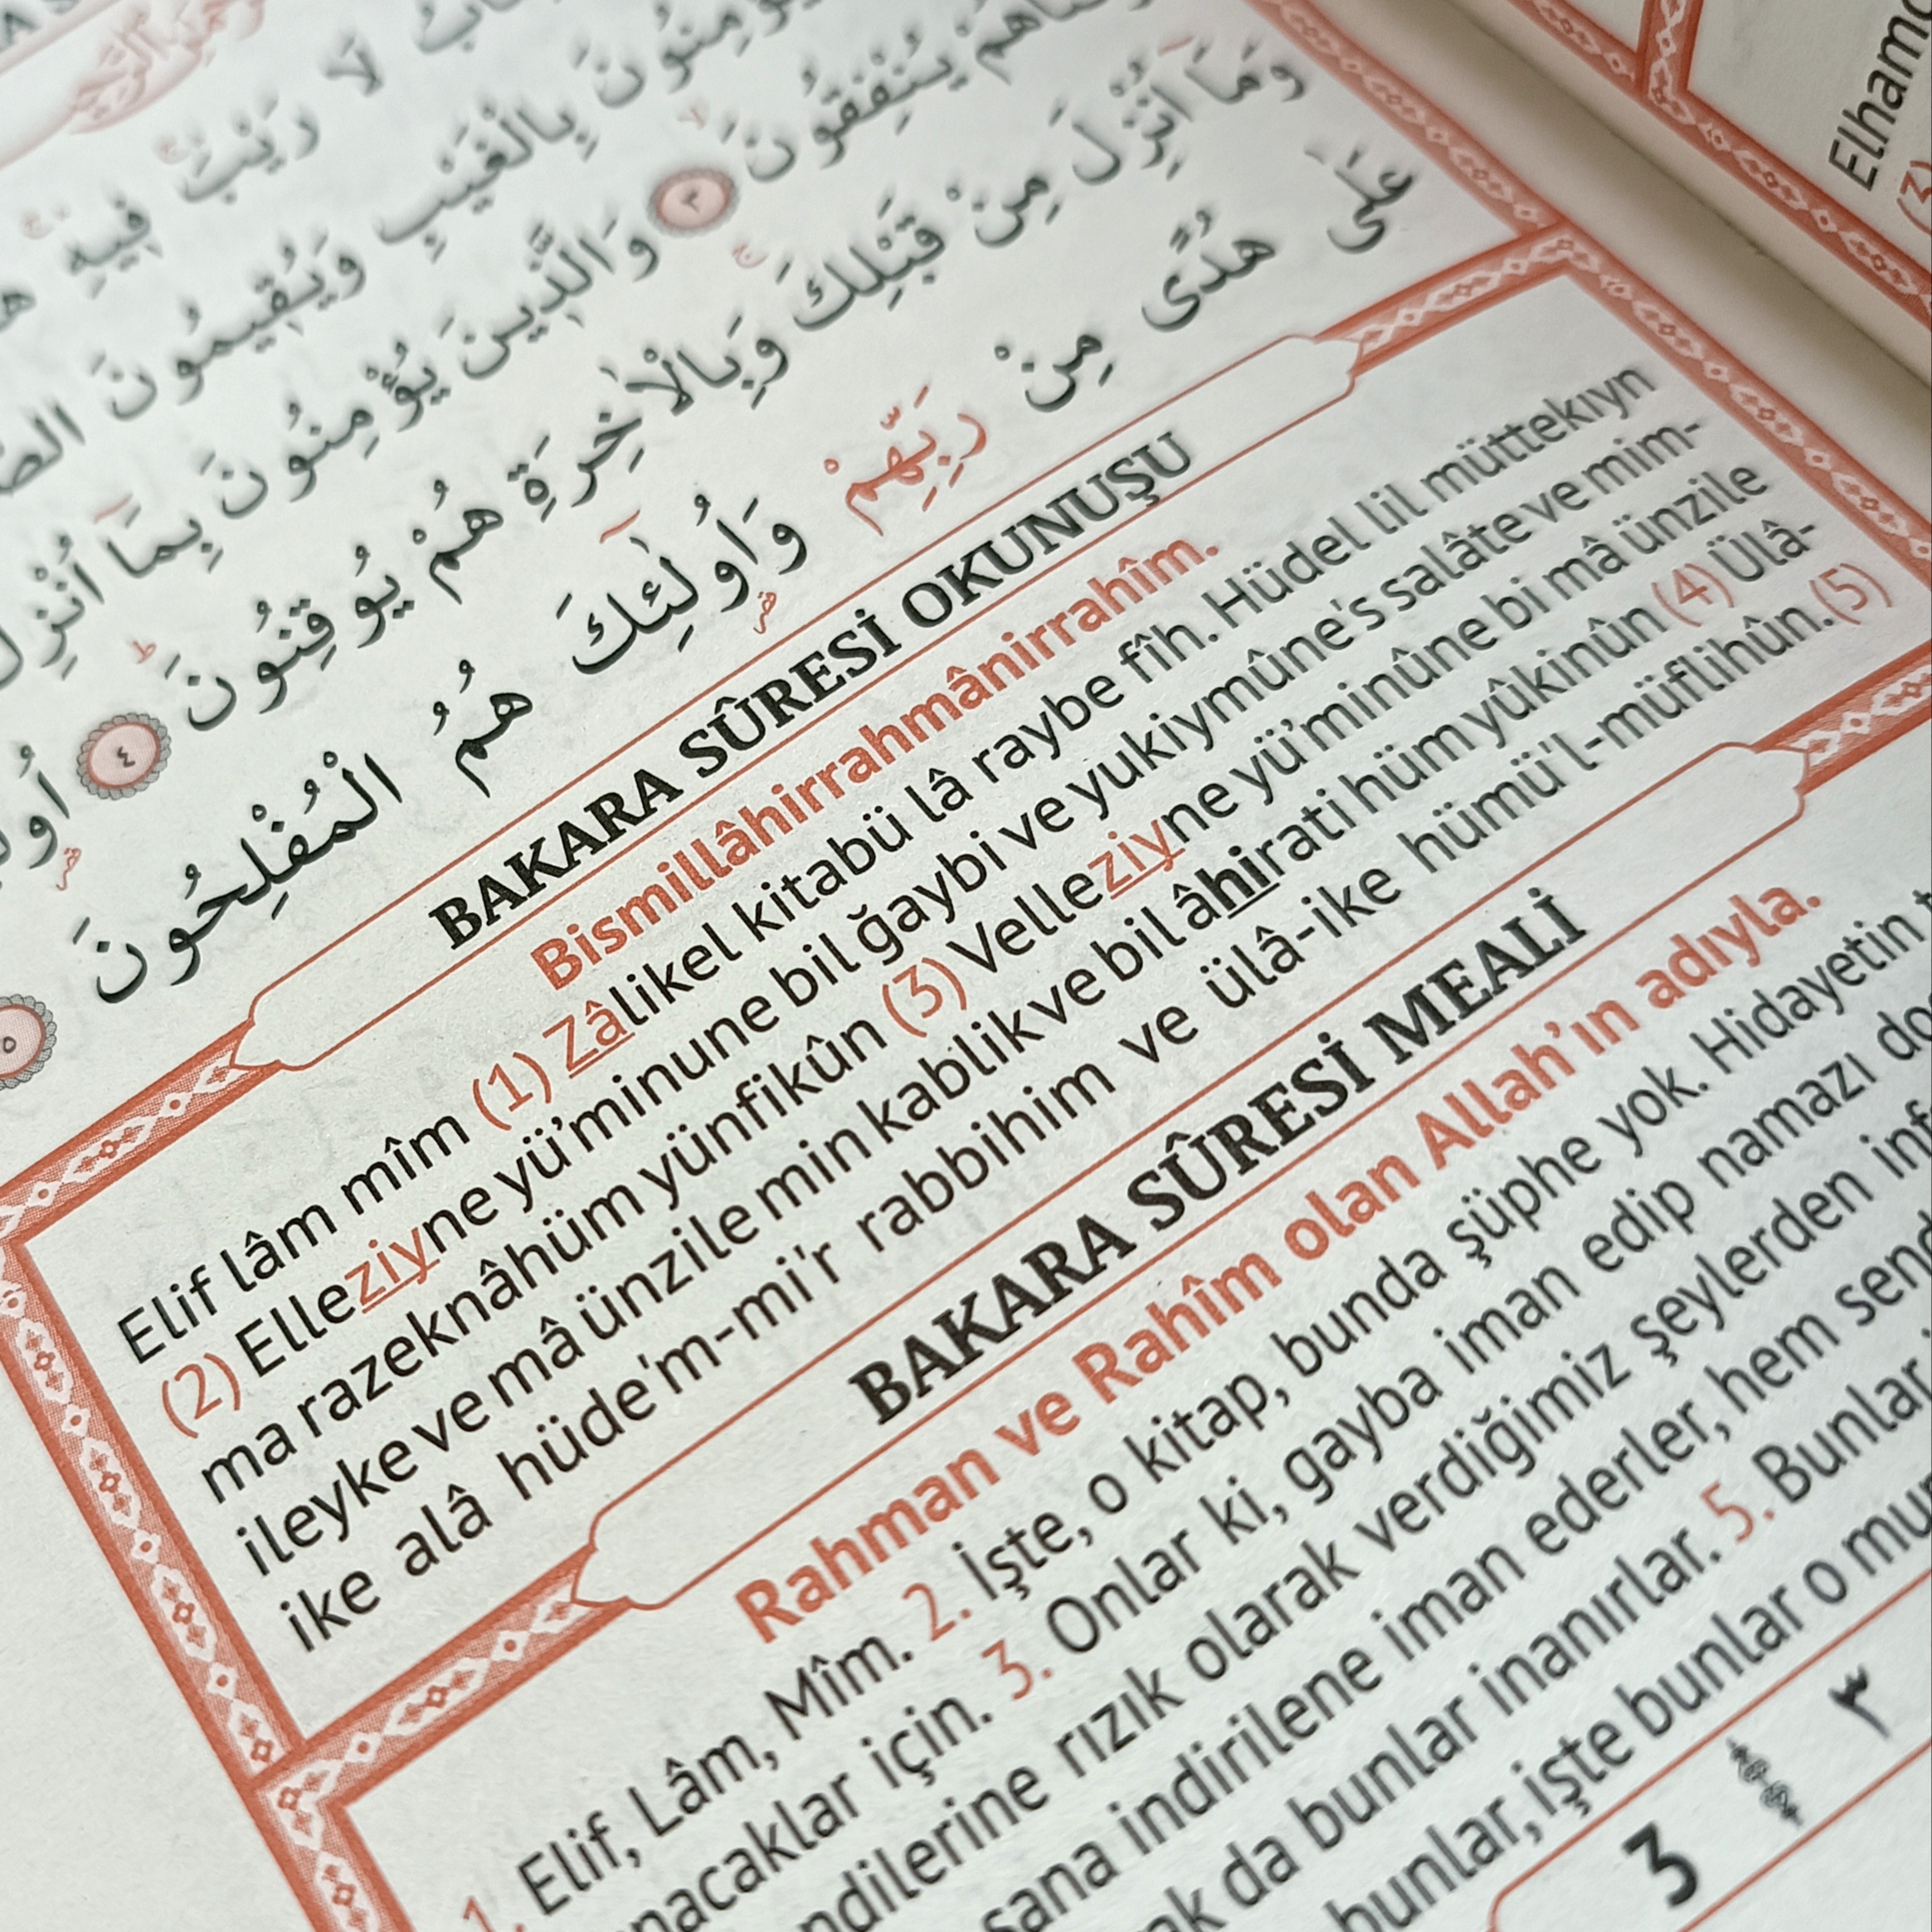 لَا رَيْبَ فِيهِ
يُؤْمِنُونَ بِالْغَيْبِ وَيُقِيمُونَ
يُنْفِقُونَ ٣ وَالَّذِينَ يُؤْمِنُونَ بِمَا اُنْزِلَ
وَمَا اُنْزِلَ مِنْ قَبْلِكَ وَبِالْاٰخِرَةِ هُمْ يُوقِنُونَ ٤
عَلٰى هُدًى مِنْ رَبِّهِمْ وَاُولٰئِكَ هُمُ الْمُفْلِحُونَ ٥
BAKARA SÛRESİ OKUNUŞU
Bismillâhirrahmânirrahîm.
Elif lâm mîm (1) Zâlikel kitabü lâ raybe fîh. Hüdel lil müttekıyn
(2) Elleziyne yü'minune bil ğaybi ve yukiymûne's salâte ve mim-
ma razeknâhüm yünfikûn (3) Velleziyne yü'minûne bi mâ ünzile
ileyke ve mâ ünzile min kablik ve bil âhirati hüm yûkinûn (4) Ülâ-
ike alâ hüde'm-mi'r rabbihim ve ülâ-ike hümü'l-müflihûn. (5)
BAKARA SÛRESİ MEALİ
Rahman ve Rahîm olan Allah'ın adıyla.
1. Elif, Lâm, Mîm. 2. İşte, o kitap, bunda şüphe yok. Hidayetin
için. 3. Onlar ki, gayba iman edip namazı
rızık olarak verdiğimiz şeylerden
sana indirilene iman ederler, hem
da bunlar inanırlar. 5. Bunlar
bunlar, işte bunlar o
3 ٣